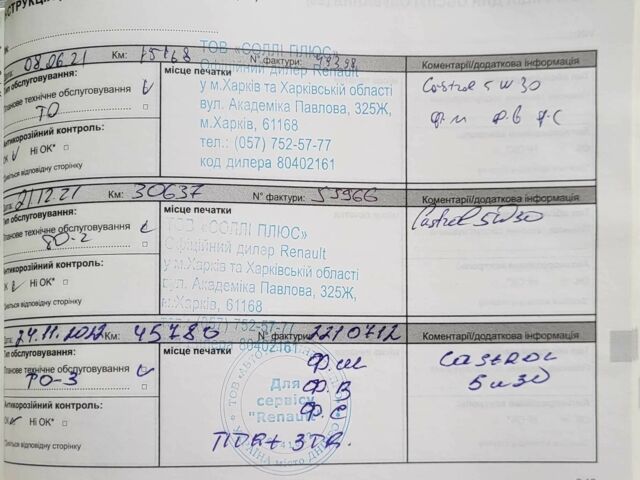 08.06.21 Км: 15168 N° фактури:
Тип обслуговування:
Планове технічне обслуговування V
ТО
Антикорозійний контроль:
OK V Ні OK*
Дивіться відповідну сторінку
місце печатки
ТОВ «СОЛЛІ ПЛЮС»
Офіційний дилер Renault
у м.Харків та Харківській області
вул. Академіка Павлова, 325Ж,
м.Харків, 61168
тел.: (057) 752-57-77
код дилера 80402161
Коментарі/додаткова інформація
Castrol 5w30
ф.м ф.в ф.с
21.12.21 Км: 30637 N° фактури: 55966
Тип обслуговування:
Планове технічне обслуговування
ТО-2
Антикорозійний контроль:
OK V Ні OK*
Дивіться відповідну сторінку
місце печатки
ТОВ «СОЛЛІ ПЛЮС»
Офіційний дилер Renault
у м.Харків та Харківській області
вул. Академіка Павлова, 325Ж,
м.Харків, 61168
752-57-77
дилера 80402161
Коментарі/додаткова інформація
Castrol 5w30
24.11.2022 Км: 45780 N° фактури: 2210712
Тип обслуговування:
Планове технічне обслуговування V
ТО-3
Антикорозійний контроль:
OK Ні OK*
Дивіться відповідну сторінку
місце печатки
Для
сервісу
"Renault"
Ф.м
Ф.В
Ф.С
Коментарі/додаткова інформація
Castrol
5w30